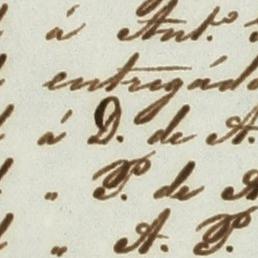 á Ant.º
entregád
á D. de A.
" P. de A
" A. P.